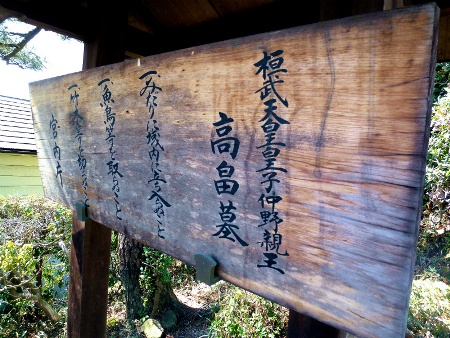 桓武天皇皇子仲野親王
高畠墓
一みだりに域内に立入らぬこと
一魚鳥等を取らぬこと
一竹木等を切らぬこと
宮内庁